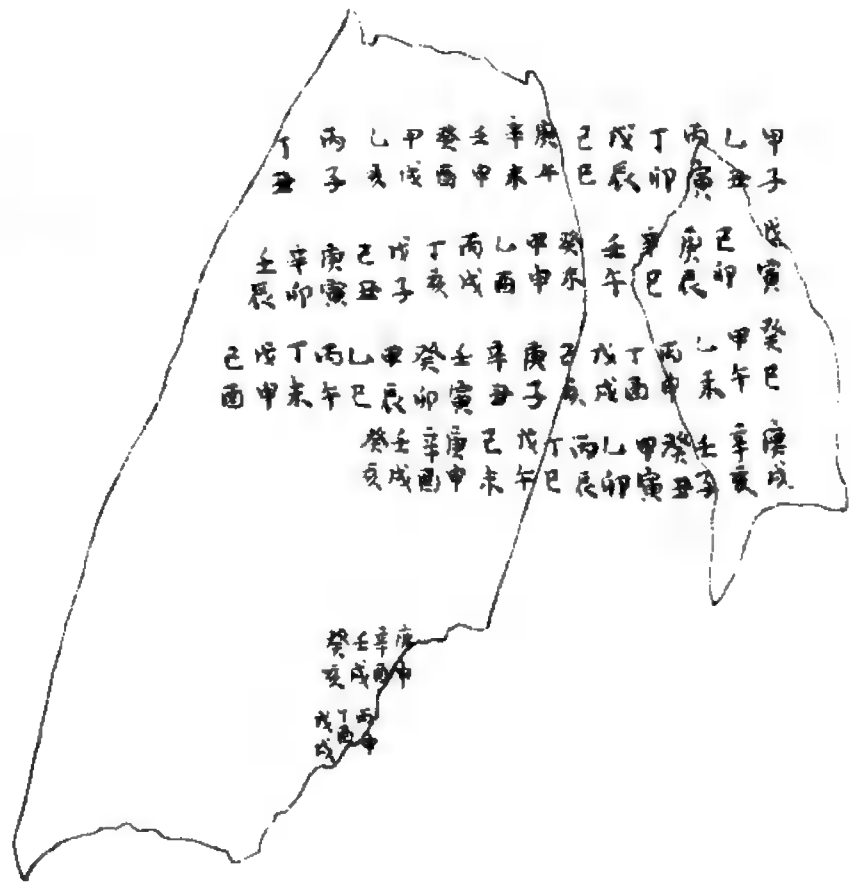 甲子乙丑丙寅丁卯戊辰己巳庚午辛未壬申癸酉甲戌乙亥丙子丁丑
戊寅己卯庚辰辛巳壬午癸未甲申乙酉丙戌丁亥戊子己丑庚寅辛卯壬辰
癸巳甲午乙未丙申丁酉戊戌己亥庚子辛丑壬寅癸卯甲辰乙巳丙午丁未戊申己酉
庚戌辛亥壬子癸丑甲寅乙卯丙辰丁巳戊午己未庚申辛酉壬戌癸亥
庚申辛酉壬戌癸亥
丙申丁酉戊戌